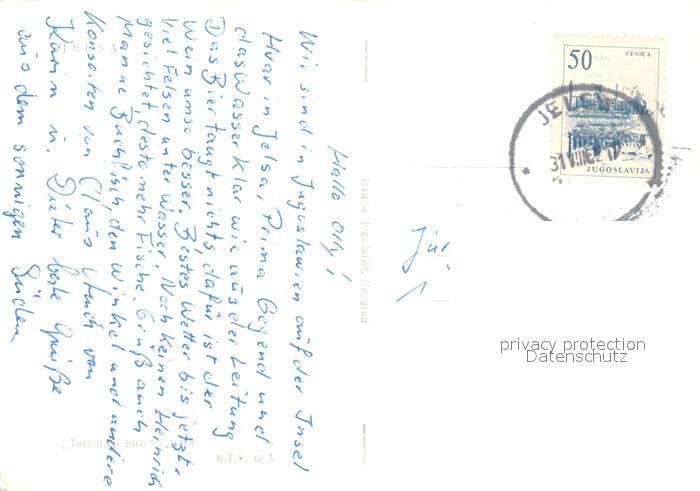 Hallo Olly!
Wir sind in Jugoslawien auf der Insel
Hvar in Jelsa, Prima Gegend und
das Wasser klar wie aus der Leitung
Das Bier taugt nichts dafür ist der
Wein umso besser. Bestes Wetter bis jetzt.
Viel Felsen unter Wasser. Noch keinen Heinrich
gesichtet, desto mehr Fische. Gruß auch
Manne den Winkel und andere
Konsorten von Claus Auch von
Karin u. Dieter beste Grüße
aus dem sonnigen Süden
JELSA
„Turistički biro"
K.T.F. 46 A
Jugoturist, Beograd
50
ZENICA
JUGOSLAVIJA
Jür
privacy protection
Datenschutz